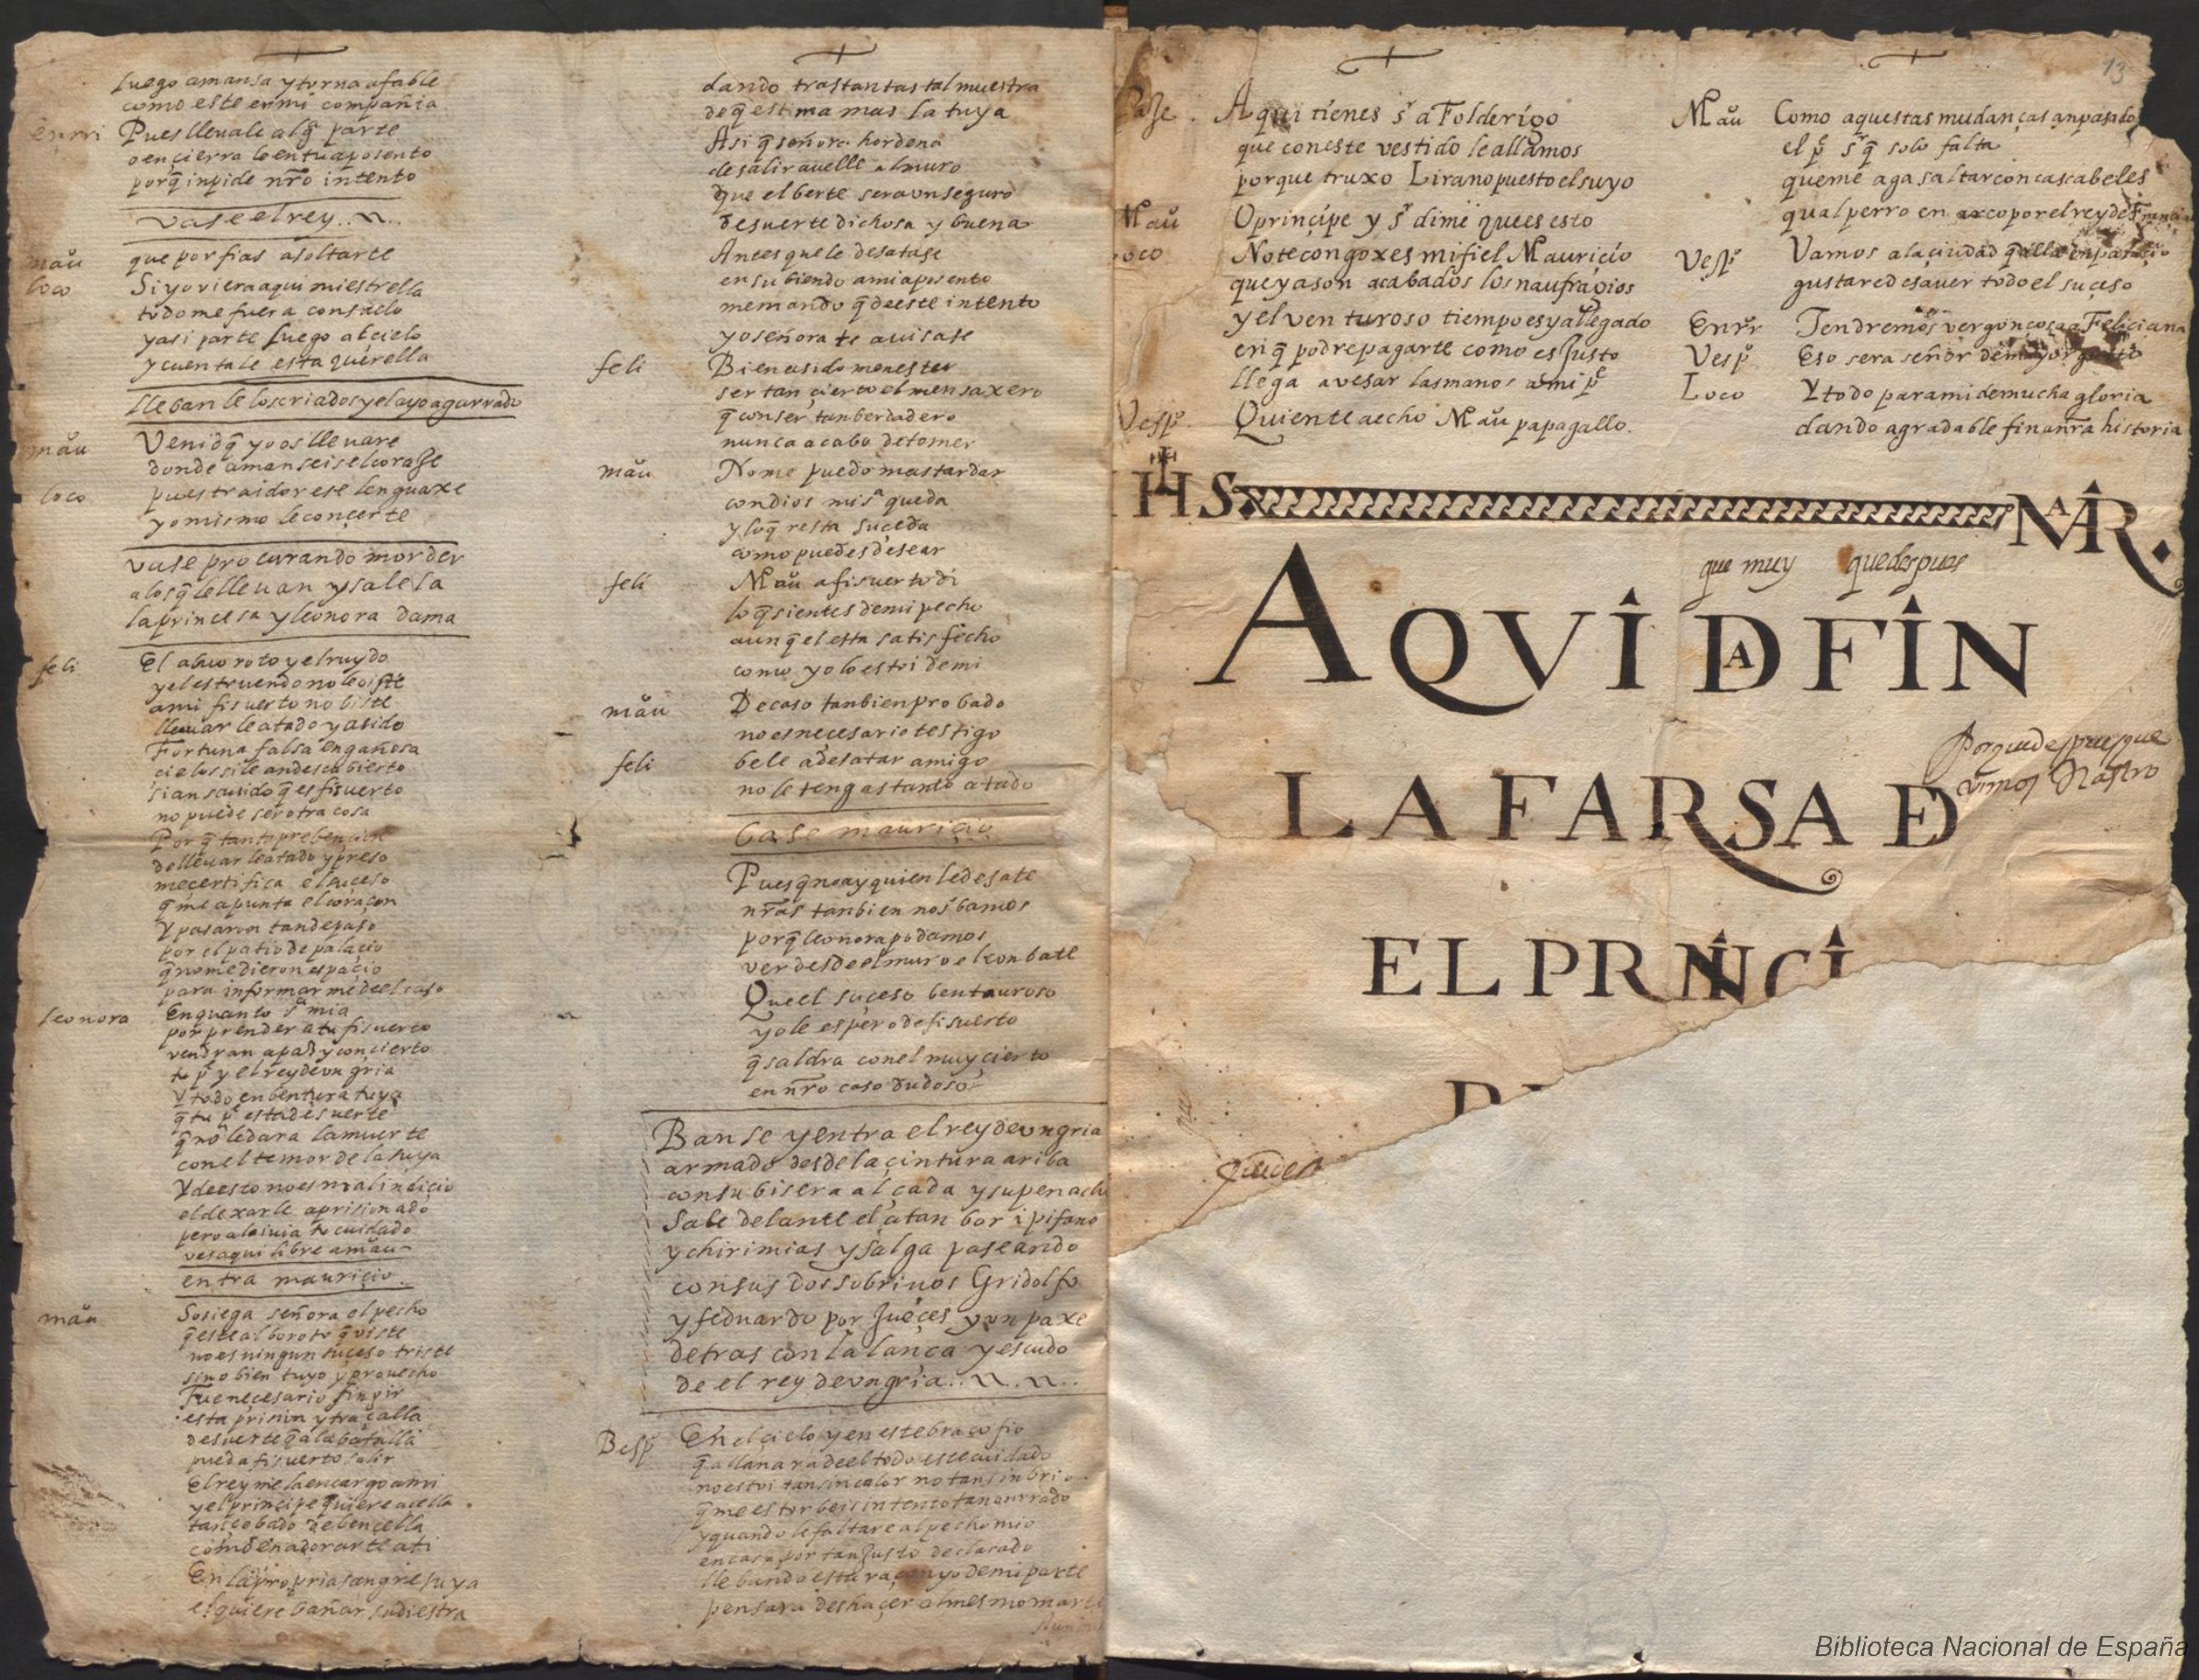 luego amansa y torna afable
como este en mi compañia
enrri Pues lleuale alg̃ parte
o ençierra lo en tu aposento
porq̃ inpide nr̃o intento
vase el rey
mãu que porfias a soltarte
loco Si yo viera aqui mi estrella
todo me fuera consuelo
y asi parte luego al çielo
y cuentale esta querella
lleban le los criados y el ayo agarrado
mãu Venid q̃ yo os lleuare
donde amanseis el coraje
loco pues traidor ese lenguaxe
yo mismo le conçerte
vase procurando morder
a los q̃ le lleuan y sale la
la princesa y leonora dama
feli El alboroto y el ruydo
y el estruendo no le oiste
a mi fisuerto no biste
lleuar le atado y asido
Fortuna falsa engañosa
cielos si le an descubierto
si an sauido q̃ es fisuerto
no puede ser otra cosa
Por q̃ tanta prebençion
de lleuar le atado y preso
me çertifica el suçeso
q̃ me apunta el coraçon
Y pasaron tan de paso
por el patio de palaçio
q̃ no me dieron espaçio
para informar me de el caso
leonora En quanto sª mia
por prender a tu fisuerto
vendran a paz y conçierto
tu pᵉ y el rey de vngria
Y todo en bentura tuya
q̃ tu pᵉ esta de suerte
q̃ no le dara la muerte
con el temor de la tuya
Y de esto no es mal indiçio
el dexarle aprisionado
pero aliuia tu cuidado
ves aqui libre a mãu
entra mauriçio
mãu Sosiega señora el pecho
q̃ este alboroto q̃ viste
no es ningun suçeso triste
sino bien tuyo y prouecho
Fue neçesario fingir
esta prision y traçalla
de suerte q̃ a la batalla
pueda fisuerto salir
El rey me la encargo a mi
y el prinçipe quiere a ella
tan çebado de bençella
como en adorarte a ti
En la propria sangre suya
el quiere bañar su diestra
dando tras tantas tal muestra
de q̃ estima mas la tuya
Asi q̃ señora hordena
de salir a uelle al muro
que el berte sera vn seguro
de suerte dichosa y buena
Antes que le desatase
en subiendo a mi aposento
me mando q̃ de este intento
yo señora te auisase
feli Bien a sido menester
ser tan çierto el mensaxero
q̃ con ser tan berdadero
nunca acabo de tomer
mãu No me puedo mas tardar
con dios mi sª queda
y lo q̃ resta suçeda
como puedes desear
feli Mãu a fisuerto di
lo q̃ sientes de mi pecho
aunq̃ el esta satisfecho
como yo lo estoi de mi
mãu De caso tan bien probado
no es necesario testigo
feli bele a desatar amigo
no le tengas tanto atado
base mauriçio
Pues q̃ no ay quien le desate
nr̃as tanbien nos bamos
porq̃ leonora podamos
ver desde el muro el conbate
Que el suçeso benturoso
yo le espero de fisuerto
q̃ saldra con el muy çierto
en nr̃o caso dudoso
Banse y entra el rey de vngria
armado desde la çintura ariba
con su bisera alçada y su penacho
sale delante el atanbor i pifano
y chirimias y salga paseando
con sus dos sobrinos Gridolfo
y feduardo por Jueçes y vn paxe
detras con la lança y escudo
de el rey de vngria
Besp̃ En el çielo y en este braço fio
q̃ allanara de el todo este cuidado
no estoi tan sin calor no tan sin brio
q̃ me estorbeis intento tan onrrado
y quando le faltare al pecho mio
en casa por tan Justo declarado
llebando esta raçon yo de mi parte
pensara deshaçer al mesmo marte
13
Paje. Aqui tienes sʳ a Folderigo
que con este vestido le allamos
porque truxo Lirano puesto el suyo
Mãu O prinçipe y sʳ dime que es esto
loco No te congoxes mi fiel Mauriçio
que ya son acabados los naufragios
y el venturoso tiempo es ya llegado
en q̃ podre pagarte como es Justo
llega a vesar las manos a mi pᵉ
Vesp̃. Quien te a echo Mãu papagallo.
Mãu Como aquestas mudanças an pasado
el pᵉ sʳ q̃ solo falta
que me aga saltar con cascabeles
qual perro en arco por el rey de Françia
Vesp̃ Vamos a la çiudad q̃ alla en palaçio
gustare de sauer todo el suçeso
Enrr Tendremos vergonçosa a Feliciana
Vesp̃ Eso sera señor de mayor gusto
Loco Y todo para mi de mucha gloria
dando agradable fin a nr̃a historia
IHS MAR.
que muy que despues
AQVI DA FIN
LA FARSA DE
Porque despues que
vimos Nastro
EL PRINCI